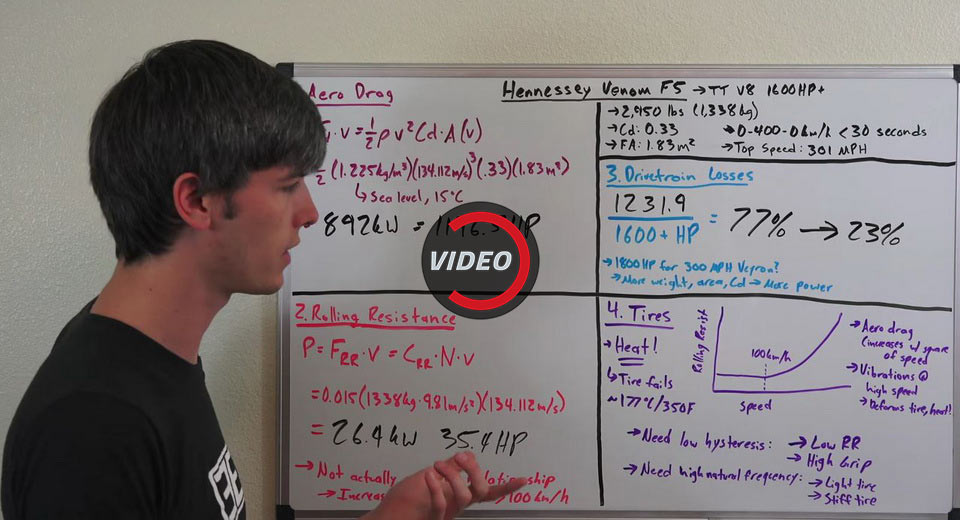 Aero Drag
·V = ½ρV²Cd·A(V)
(1.225kg/m³)(134.112m/s)³(.33)(1.83m²)
↳ Sea level, 15°C
892kW =
VIDEO
Hennessey Venom F5 → TT V8 1600HP+
→ 2,950 lbs (1,338kg)
→ Cd: 0.33
→ 0-400-0km/h < 30 seconds
→ FA: 1.83m²
→ Top Speed: 301 MPH
3. Drivetrain Losses
1231.9
1600+ HP
= 77% → 23%
→ 1800HP for 300 MPH Veyron?
→ More weight, area, Cd → More power
2. Rolling Resistance
P = F_RR·V = C_RR·N·V
= 0.015(1338kg·9.81m/s²)(134.112m/s)
= 26.4kW 35.4HP
→ Not actually
→ Increas
100km/h
4. Tires
→ Heat!
↳ Tire fails
~177°C/350F
Rolling Resist
100km/h
Speed
→ Aero drag
(increases w/ square
of speed
→ Vibrations @
high speed
→ Deforms tire, heat!
→ Need low hysteresis: → Low RR
→ High Grip
→ Need high natural frequency: → Light tire
→ Stiff tire